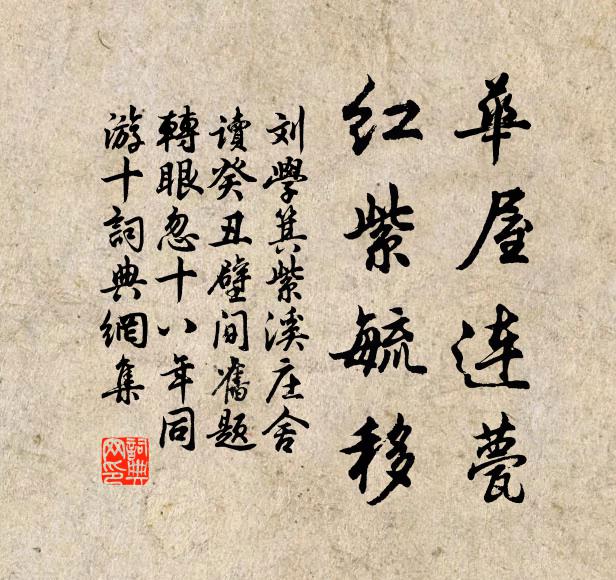 華屋連甍
红紫毓移
刘學箕紫溪庄舍
讀癸丑壁间舊题
轉眼忽十八年同
游十詞典網集
詞典网印